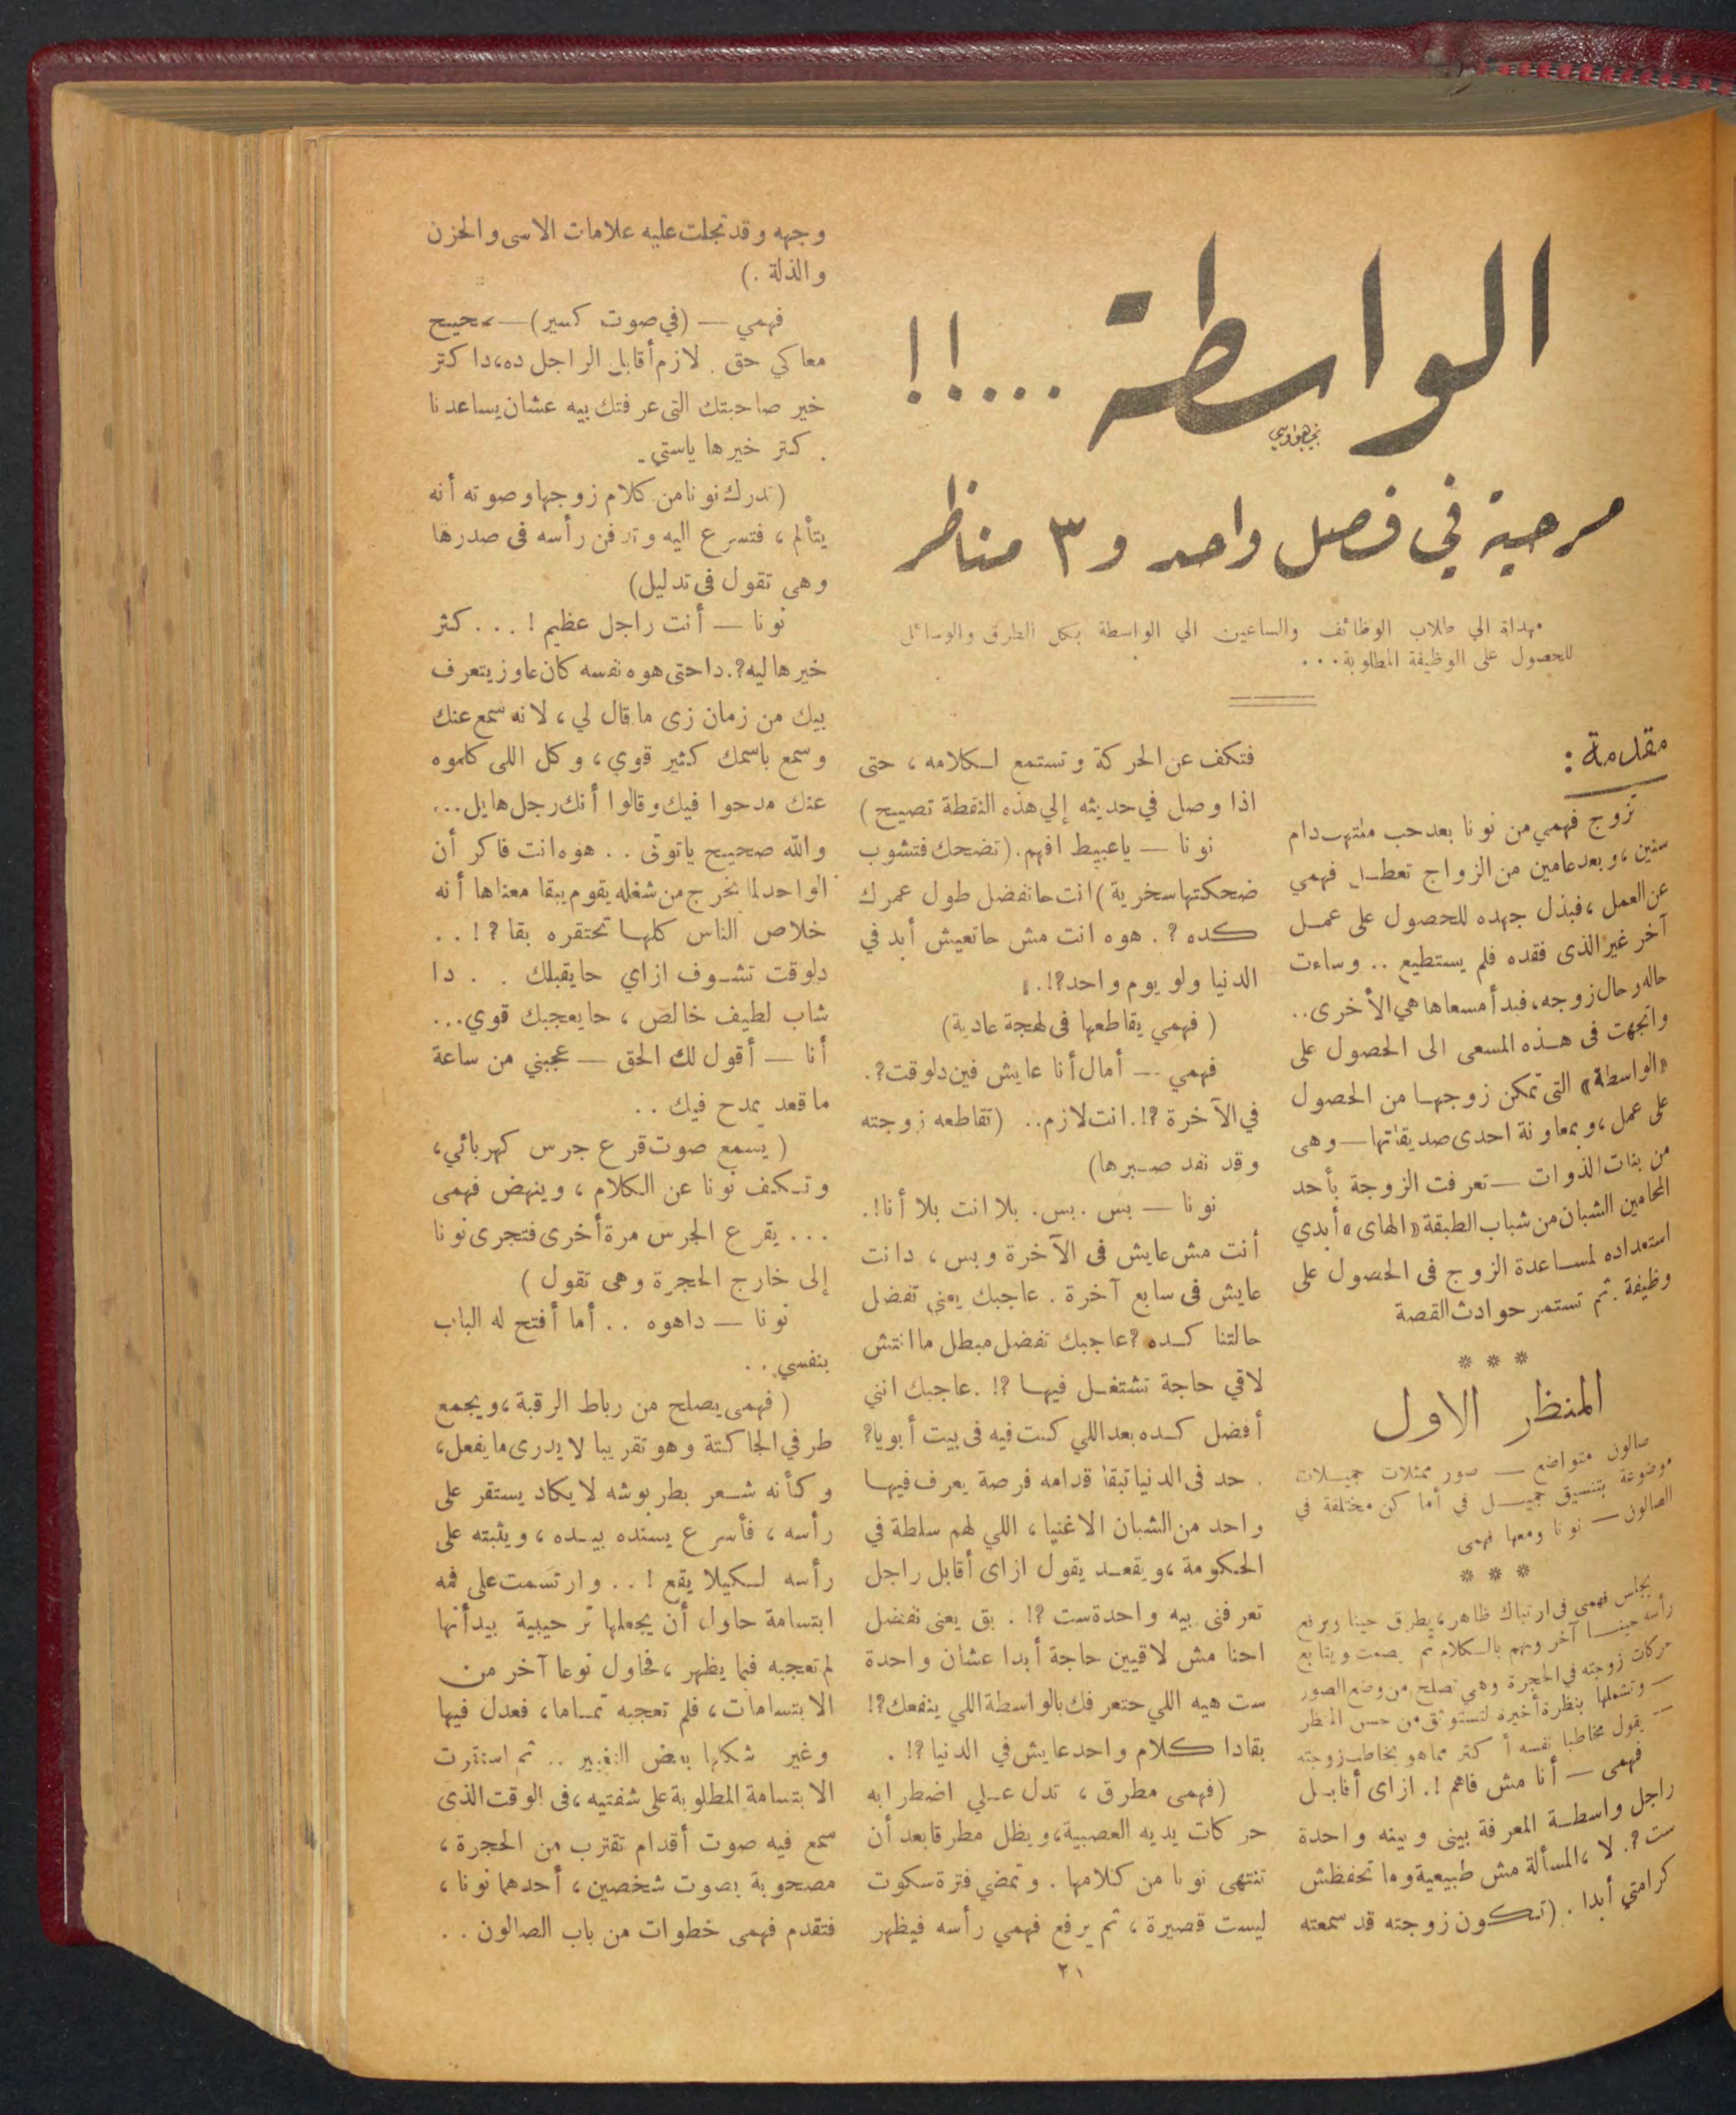 الواسطة ....!!
نجيب هواويني
مسرحية في فصل واحد و ٣ مناظر
مهداة الي طلاب الوظائف والساعين الي الواسطة بكل الطرق والوسائل
للحصول على الوظيفة المطلوبة...
مقدمة :
تزوج فهمي من نونا بعد حب ملتهب دام
سنين، وبعد عامين من الزواج تعطل فهمي
عن العمل، فبذل جهده للحصول على عمل
آخر غير الذى فقده فلم يستطيع .. وساءت
حاله وحال زوجه، فبدأ مسعاها هي الأخرى..
واتجهت فى هذه المسعى الى الحصول على
«الواسطة» التى تمكن زوجها من الحصول
على عمل، وبمعاونة احدى صديقاتها — وهى
من بنات الذوات — تعرفت الزوجة بأحد
المحامين الشبان من شباب الطبقة «الهاى» أبدي
استعداده لمساعدة الزوج فى الحصول على
وظيفة. ثم تستمر حوادث القصة
* * *
المنظر الاول
صالون متواضع — صور ممثلات جميلات
موضوعة بتنسيق جميل في أماكن مختلفة في
الصالون — نونا ومعها فهمى
* * *
يجلس فهمى فى ارتباك ظاهر، يطرق حينا ويرفع
رأسه حينا آخر ويهم بالكلام ثم يصمت ويتابع
حركات زوجته في الحجرة وهي تصلح من وضع الصور
— وتشملها بنظرة أخيرة لتستوثق من حسن المنظر
— يقول مخاطبا نفسه أكثر مما هو يخاطب زوجته
فهمى — أنا مش فاهم !. ازاى أقابل
راجل واسطة المعرفة بينى وبينه واحدة
ست ؟. لا، المسألة مش طبيعية وما تحفظش
كرامتي أبدا . (تكون زوجته قد سمعته
فتكف عن الحركة وتستمع لكلامه ، حتى
اذا وصل في حديثه إلي هذه النقطة تصيح )
نونا — ياعبيط افهم. (تضحك فتشوب
ضحكتها سخرية) انت حاتفضل طول عمرك
كده ؟ . هوه انت مش حاتعيش أبد في
الدنيا ولو يوم واحد؟!.
( فهمي يقاطعها فى لهجة عادية)
فهمي — أمال أنا عايش فين دلوقت؟.
في الآخرة ؟!. انت لازم.. (تقاطعه زوجته
وقد نفد صبرها)
نونا — بس . بس. بلا انت بلا أنا!.
أنت مش عايش فى الآخرة وبس ، دانت
عايش فى سابع آخرة . عاجبك يعنى تفضل
حالتنا كده ؟ عاجبك تفضل مبطل ما انتش
لاقي حاجة تشتغل فيها ؟! . عاجبك اننى
أفضل كده بعد اللي كنت فيه فى بيت أبويا؟
. حد فى الدنيا تبقا قدامه فرصة يعرف فيها
واحد من الشبان الاغنيا ، اللي لهم سلطة في
الحكومة ، ويقعد يقول ازاى أقابل راجل
تعرفنى بيه واحدة ست ؟! . بقى يعنى نفضل
احنا مش لاقيين حاجة أبدا عشان واحدة
ست هيه اللي حتعرفك بالواسطة اللي ينفعك؟!
بقا دا كلام واحد عايش في الدنيا ؟! .
(فهمى مطرق ، تدل على اضطرابه
حركات يديه العصبية، ويظل مطرقا بعد أن
تنتهى نونا من كلامها . وتمضي فترة سكوت
ليست قصيرة ، ثم يرفع فهمي رأسه فيظهر
وجهه وقد تجلت عليه علامات الاسى والحزن
والذلة .)
فهمي — (في صوت كسير) — صحيح
معاكي حق . لازم أقابل الراجل ده، دا كتر
خير صاحبتك التى عرفتك بيه عشان يساعدنا
. كتر خيرها ياستي .
(تدرك نونا من كلام زوجها وصوته أنه
يتألم ، فتسرع اليه وتدفن رأسه فى صدرها
وهى تقول فى تدليل)
نونا — أنت راجل عظيم ! ... كثر
خيرها ليه؟. دا حتى هوه نفسه كان عاوز يتعرف
بيك من زمان زى ما قال لي ، لانه سمع عنك
وسمع باسمك كثير قوي ، وكل اللى كلموه
عنك مدحوا فيك وقالوا أنك رجل هايل...
والله صحيح ياتوتى .. هوه انت فاكر أن
الواحد لما يخرج من شغله يقوم يبقا معناها أنه
خلاص الناس كلها تحتقره بقا ؟!..
دلوقت تشوف ازاي حايقبلك . . دا
شاب لطيف خالص ، حايعجبك قوي...
أنا — أقول لك الحق — عجبني من ساعة
ما قعد يمدح فيك ..
( يسمع صوت قرع جرس كهربائي،
وتكف نونا عن الكلام ، وينهض فهمى
... يقرع الجرس مرة أخرى فتجرى نونا
إلى خارج الحجرة وهى تقول )
نونا — داهوه .. أما أفتح له الباب
بنفسي..
( فهمى يصلح من رباط الرقبة ، ويجمع
طرفي الجاكتة وهو تقريبا لا يدرى ما يفعل،
وكأنه شعر بطربوشه لا يكاد يستقر على
رأسه ، فأسرع يسنده بيده ، ويثبته على
رأسه لكيلا يقع ! .. وارتسمت على فمه
ابتسامة حاول أن يجعلها ترحيبية بيد أنها
لم تعجبه فيما يظهر ، فحاول نوعا آخر من
الابتسامات ، فلم تعجبه تماما، فعدل فيها
وغير شكلها بعض التغيير .. ثم استقرت
الابتسامة المطلوبة على شفتيه ، فى الوقت الذى
سمع فيه صوت أقدام تقترب من الحجرة ،
مصحوبة بصوت شخصين ، أحدهما نونا ،
فتقدم فهمى خطوات من باب الصالون ..
٢١